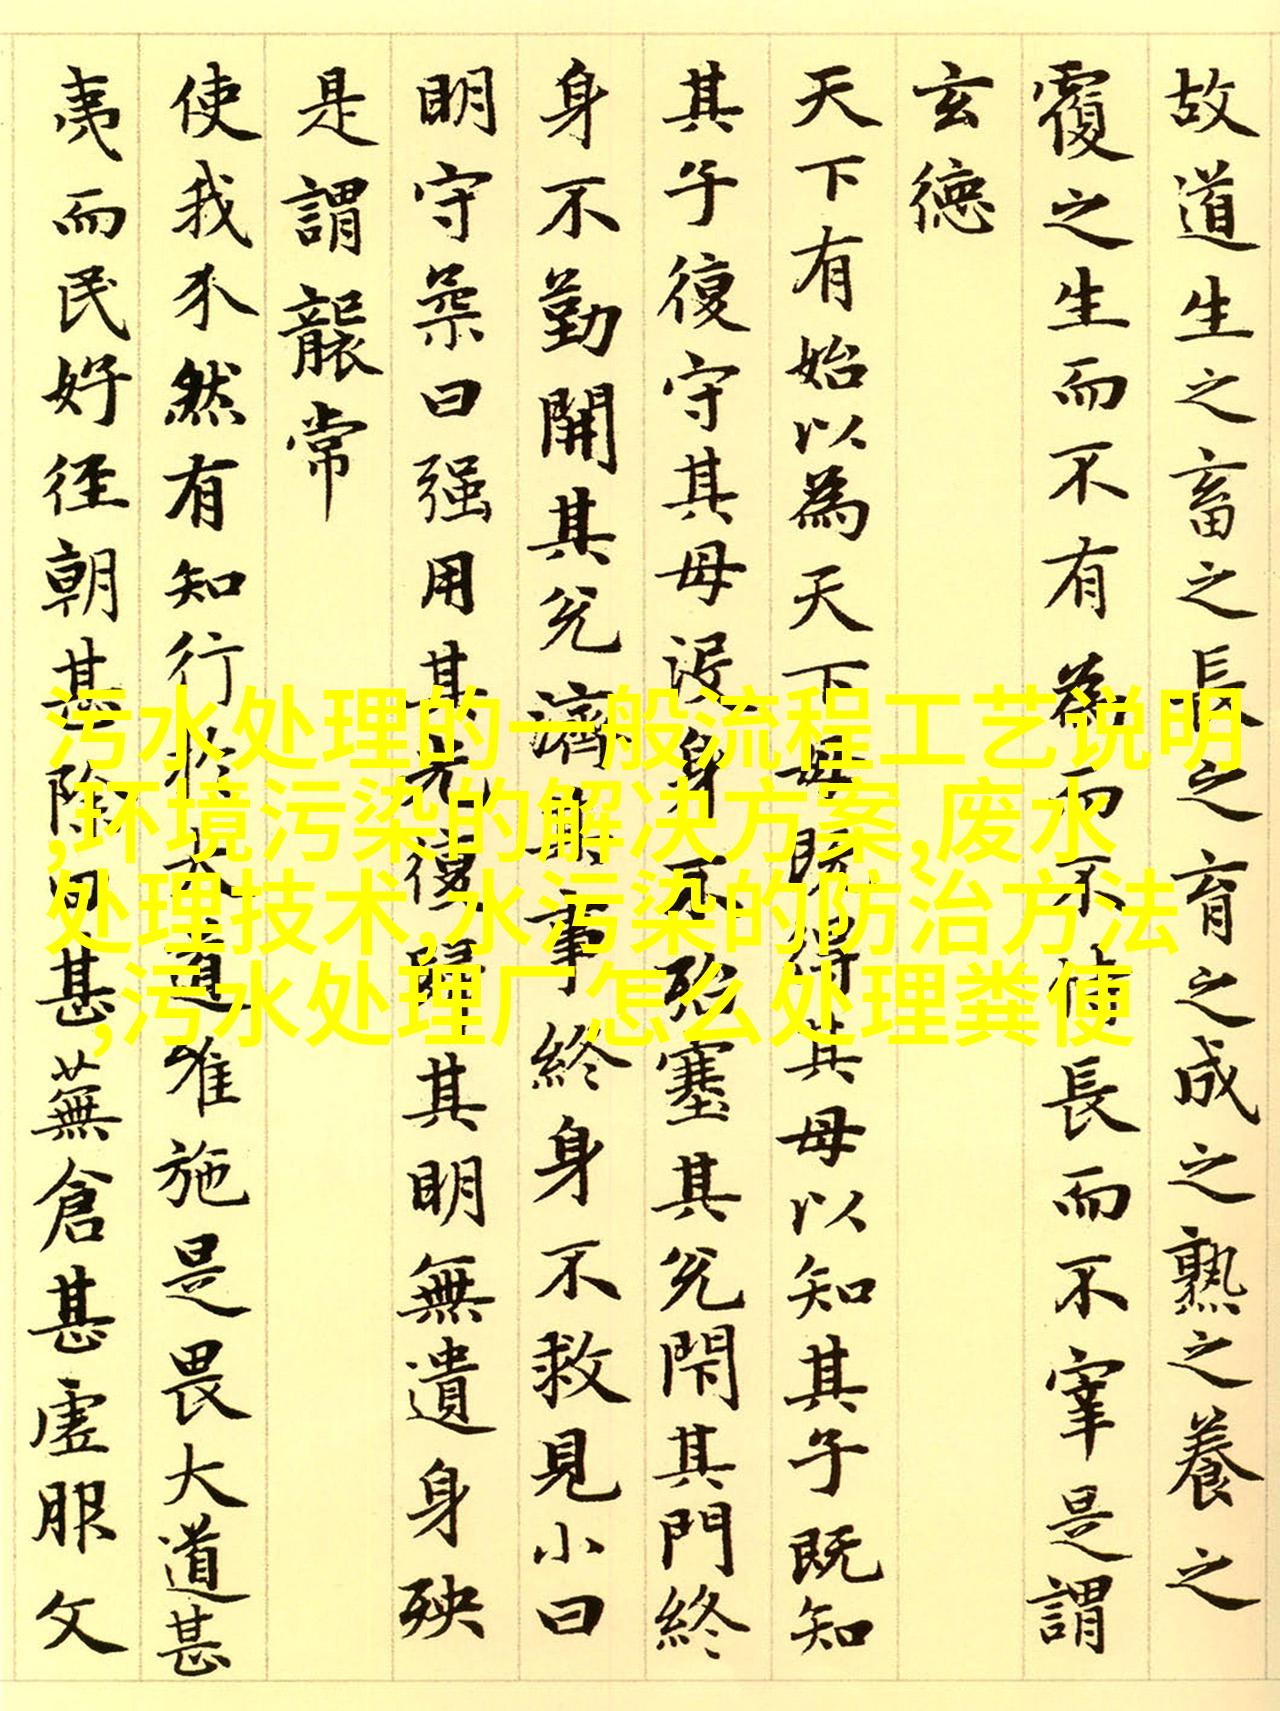 故道生之畜之長之育之成之熟之養之
覆之生而不有為而不恃長而不宰是謂
玄德
天下有始以為天下母既得其母以知其子既知
其子復守其母沒身不殆塞其兌閇其門終
身不勤開其兌濟其事終身不救見小曰
明守柔曰强用其光復歸其明無遺身殃
是謂襲常
使我介然有知行於大道唯施是畏大道甚
夷而民好徑朝甚除田甚蕪倉甚虛服文
污水处理的一般流程工艺说明
,环境污染的解决方案,废水
处理技术,水污染的防治方法
,污水处理厂怎么处理粪便